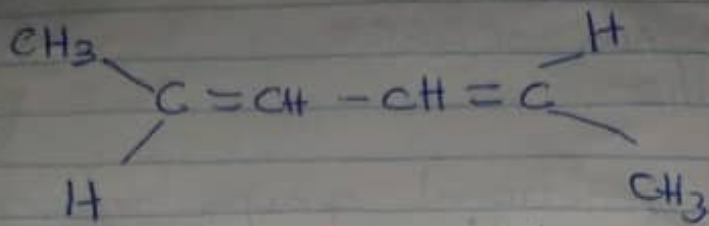 CH3 H
C = CH - CH = C
H CH3